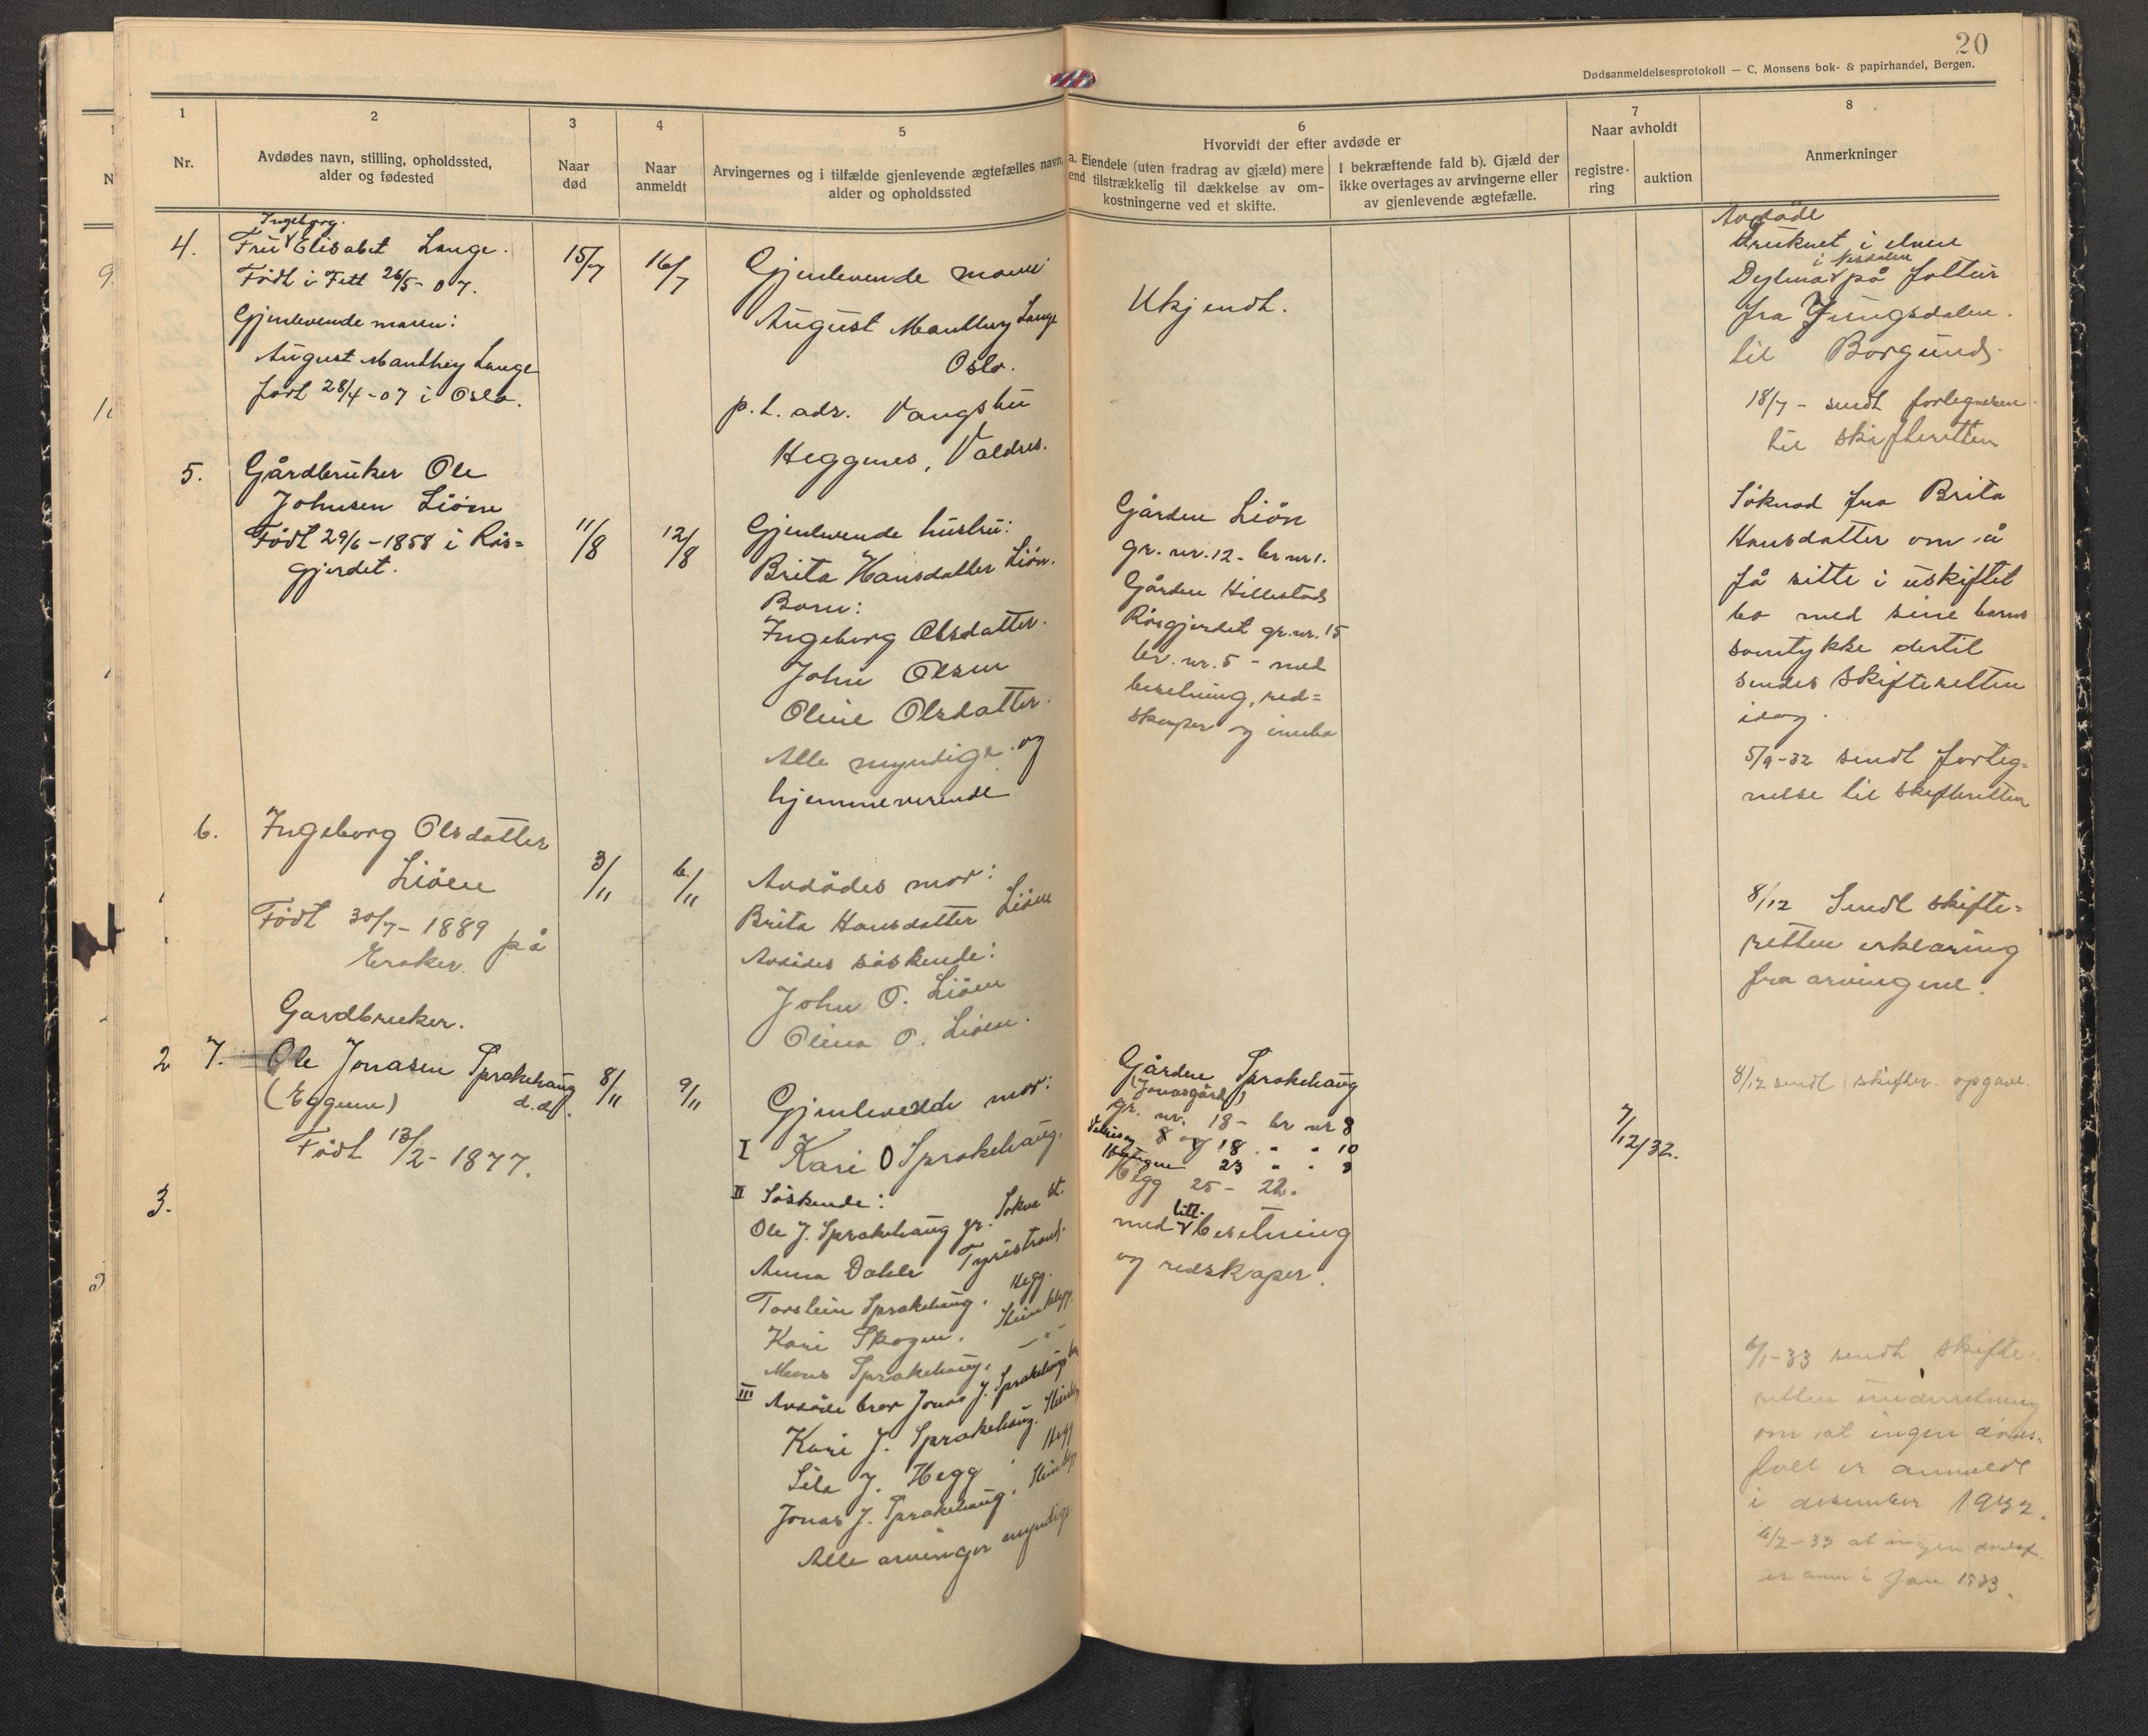 20
Dødsanmeldelsesprotokoll — C. Monsens bok- & papirhandel, Bergen.
1
Nr.
2
Avdødes navn, stilling, opholdssted,
alder og fødested
3
Naar
død
4
Naar
anmeldt
5
Arvingernes og i tilfælde gjenlevende ægtefælles navn,
alder og opholdssted
6
Hvorvidt der efter avdøde er
a. Eiendele (uten fradrag av gjæld) mere
end tilstrækkelig til dækkelse av om-
kostningerne ved et skifte.
I bekræftende fald b). Gjæld der
ikke overtages av arvingerne eller
av gjenlevende ægtefælle.
7
Naar avholdt
registre-
ring
auktion
8
Anmerkninger
4.
Ingeborg
Fru Elisabet Lange.
Født i Fett 26/5-07.
Gjenlevende mann:
August Manthey Lange
født 28/4-07 i Oslo.
15/7
16/7
Gjenlevende mann
August Manthey Lange
Oslo.
p.t. adr. Vangshu
Heggenes, Valdres.
Ukjendt.
Avdøde
druknet i elven
på fottur
fra Jungsdalen
til Borgund.
18/7 - sendt
til skifteretten
5.
Gårdbruker Ole
Johnsen Liøen
Født 29/6-1858 i Røs=
gjerdet.
11/8
12/8
Gjenlevende hustru:
Brita Hansdatter Liøn.
Barn:
Ingeborg Olsdatter.
John Olsen
Oline Olsdatter.
Alle myndige og
hjemmeverende
Gården Liøn
gr. nr. 12 - br nr 1.
Gården Hillestad
Røsgjerdet gr. nr. 15
br. nr. 5 - med
besetning, red=
skaper og innbo
Søknad fra Brita
Hansdatter om å
få sitte i uskiftet
bo med sine barns
samtykke dertil
sendes skifteretten
idag.
5/9-32 sendt forteg=
nelse til skifteretten
6.
Ingeborg Olsdatter
Liøen
Født 30/7-1889 på
Eraker.
3/11
6/11
Avdødes mor:
Brita Hansdatter Liøen
Avdødes søskende:
John O. Liøen
Olina O. Liøen.
8/12 Sendt skifte=
retten erklæring
fra arvingene.
2
7.
Gardbruker.
Ole Jonasen Sprakehaug
(Eggum) d.d.
Født 13/2-1877.
8/11
9/11
Gjenlevende mor:
I Kari O Sprakehaug.
II Søskende:
Ole J. Sprakehaug gr. Sokna st.
Anna Dahle Tyristrand.
Torstein Sprakehaug. Hegg.
Kari Skogen.
Mons Sprakehaug. — " —
III Avdøde bror Jonas J. Sprakehaugs
Kari J. Sprakehaug.
Sila J. Hegg Hegg
Jonas J. Sprakehaug.
Alle arvinger myndige
Gården Sprakehaug
(Jonasgård)
gr. nr. 18 - br nr 8
8 og 18 " " 10
23 " " 8
Hegg 25 - 22.
med litt besetning
og redskaper.
7/12/32.
8/12 sendt skifter. opgave.
3.
6/1-33 sendt skifte=
retten underretning
om at ingen døds-
fall er anmeldt
i desember 1932.
6/2-33 at ingen dødsf.
er anm i Jan 1933.